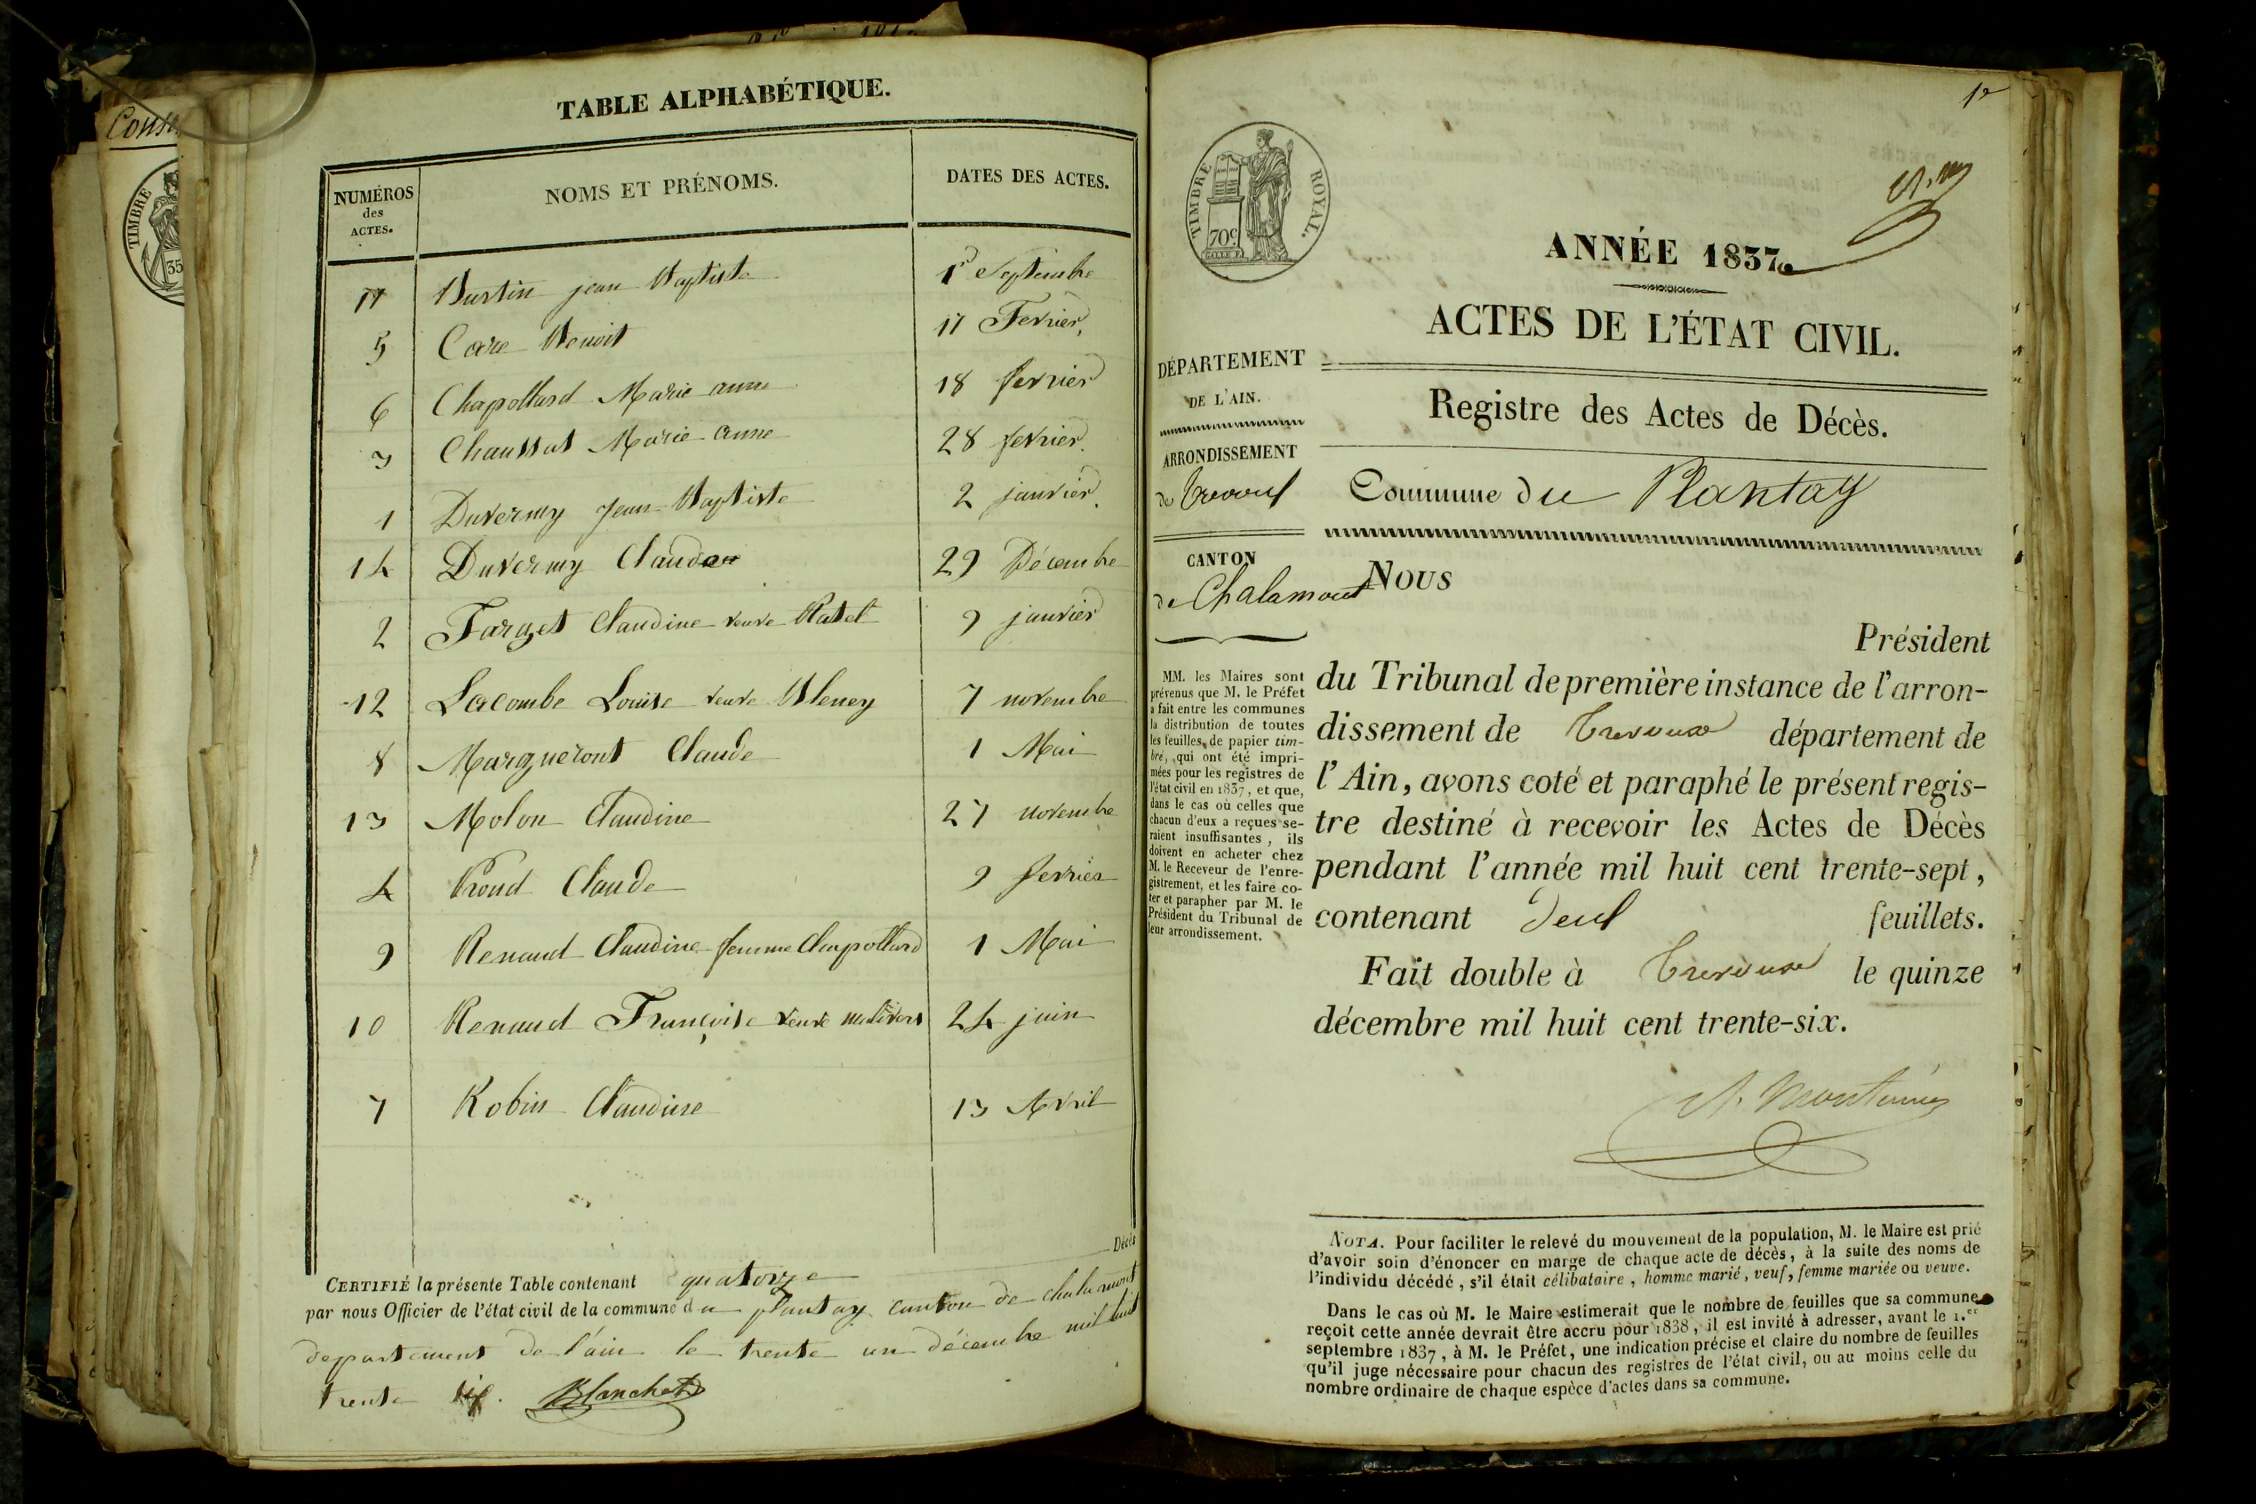 Cons
TIMBRE
35
TABLE ALPHABÉTIQUE.
NUMÉROS des ACTES. NOMS ET PRÉNOMS. DATES DES ACTES.
11 Burtin jean Baptiste 1er Septembre
5 Carre Benoit 17 Fevrier,
6 Chapollard Marie anne 18 fevrier
3 Chaussat Marie anne 28 fevrier.
1 Duvernay Jean Baptiste 2 janvier.
14 Duvernay Claude 29 Décembre
2 Farget Claudine veuve Ratet 9 janvier
12 Lacombe Louise veuve Bleney 7 novembre
8 Margueront Claude 1 Mai
13 Molon Claudine 27 novembre
4 Proud Claude 9 fevrier
9 Renaud Claudine femme Chapollard 1 Mai
10 Renaud Françoise veuve 24 juin
7 Robin Claudine 13 Avril
Décès
CERTIFIÉ la présente Table contenant quatorze
par nous Officier de l'état civil de la commune du plantay canton de chalamont
departement de l'ain le trente un décembre mil huit
trente six. Blanchet
1er
TIMBRE ROYAL.
70c
ANNÉE 1837.
ACTES DE L'ÉTAT CIVIL.
Registre des Actes de Décès.
Commune du Plantay
DÉPARTEMENT
DE L'AIN.
ARRONDISSEMENT
de Trevoux
CANTON
de Chalamont
MM. les Maires sont
prévenus que M. le Préfet
a fait entre les communes
la distribution de toutes
les feuilles de papier tim-
bré, qui ont été impri-
mées pour les registres de
l'état civil en 1837, et que,
dans le cas où celles que
chacun d'eux a reçues se-
raient insuffisantes, ils
doivent en acheter chez
M. le Receveur de l'enre-
gistrement, et les faire co-
ter et parapher par M. le
Président du Tribunal de
leur arrondissement.
NOUS
Président
du Tribunal de première instance de l'arron-
dissement de Trevoux département de
l'Ain, avons coté et paraphé le présent regis-
tre destiné à recevoir les Actes de Décès
pendant l'année mil huit cent trente-sept,
contenant deux feuillets.
Fait double à Trevoux le quinze
décembre mil huit cent trente-six.
NOTA. Pour faciliter le relevé du mouvement de la population, M. le Maire est prié
d'avoir soin d'énoncer en marge de chaque acte de décès, à la suite des noms de
l'individu décédé, s'il était célibataire, homme marié, veuf, femme mariée ou veuve.
Dans le cas où M. le Maire estimerait que le nombre de feuilles que sa commune
reçoit cette année devrait être accru pour 1838, il est invité à adresser, avant le 1.er
septembre 1837, à M. le Préfet, une indication précise et claire du nombre de feuilles
qu'il juge nécessaire pour chacun des registres de l'état civil, ou au moins celle du
nombre ordinaire de chaque espèce d'actes dans sa commune.